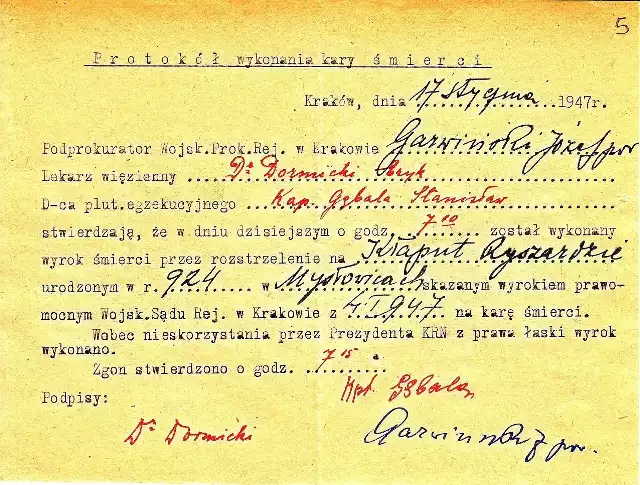 5
Protokół wykonania kary śmierci
Kraków, dnia 17 stycznia 1947r.
Podprokurator Wojsk.Prok.Rej. w Krakowie Garwiński Józef por
Lekarz więzienny Dr Dormicki
D-ca plut.egzekucyjnego Kap. Gębala Stanisław
stwierdzają, że w dniu dzisiejszym o godz. 7 10 został wykonany
wyrok śmierci przez rozstrzelenie na Kłaput Ryszardzie
urodzonym w r. 924 w Mysłowicach skazanym wyrokiem prawo-
mocnym Wojsk.Sądu Rej. w Krakowie z 4 I 947 na karę śmierci.
Wobec nieskorzystania przez Prezydenta KRN z prawa łaski wyrok
wykonano.
Zgon stwierdzono o godz. 7 15
Podpisy:
Kpt. Gębala
Dr Dormicki
Garwiński J por.